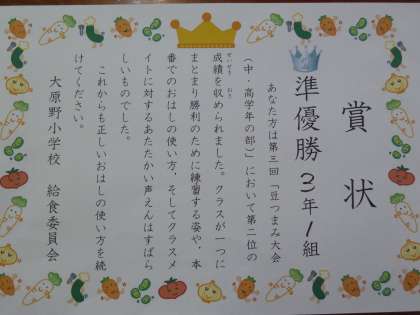 賞状
準優勝 3年1組
あなた方は第三回「豆つまみ大会
(中・高学年の部)」において第二位の
成績を収められました。クラスが一つに
まとまり勝利のために練習する姿や、本
番でのおはしの使い方、そしてクラスメ
イトに対するあたたかい声えんはすばら
しいものでした。
これからも正しいおはしの使い方を続
けてください。
大原野小学校 給食委員会